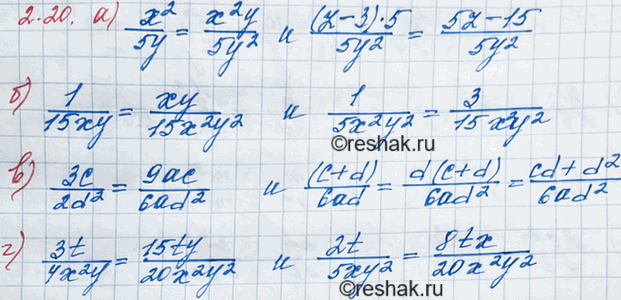 2.20. а) x²/5y = x²y/5y² и (z-3)·5/5y² = 5z-15/5y²
б) 1/15xy = xy/15x²y² и 1/5x²y² = 3/15x²y²
©reshak.ru
в) 3c/2d² = 9ac/6ad² и (c+d)/6ad = d(c+d)/6ad² = cd+d²/6ad²
г) 3t/4x²y = 15ty/20x²y² и 2t/5xy² = 8tx/20x²y²
©reshak.ru